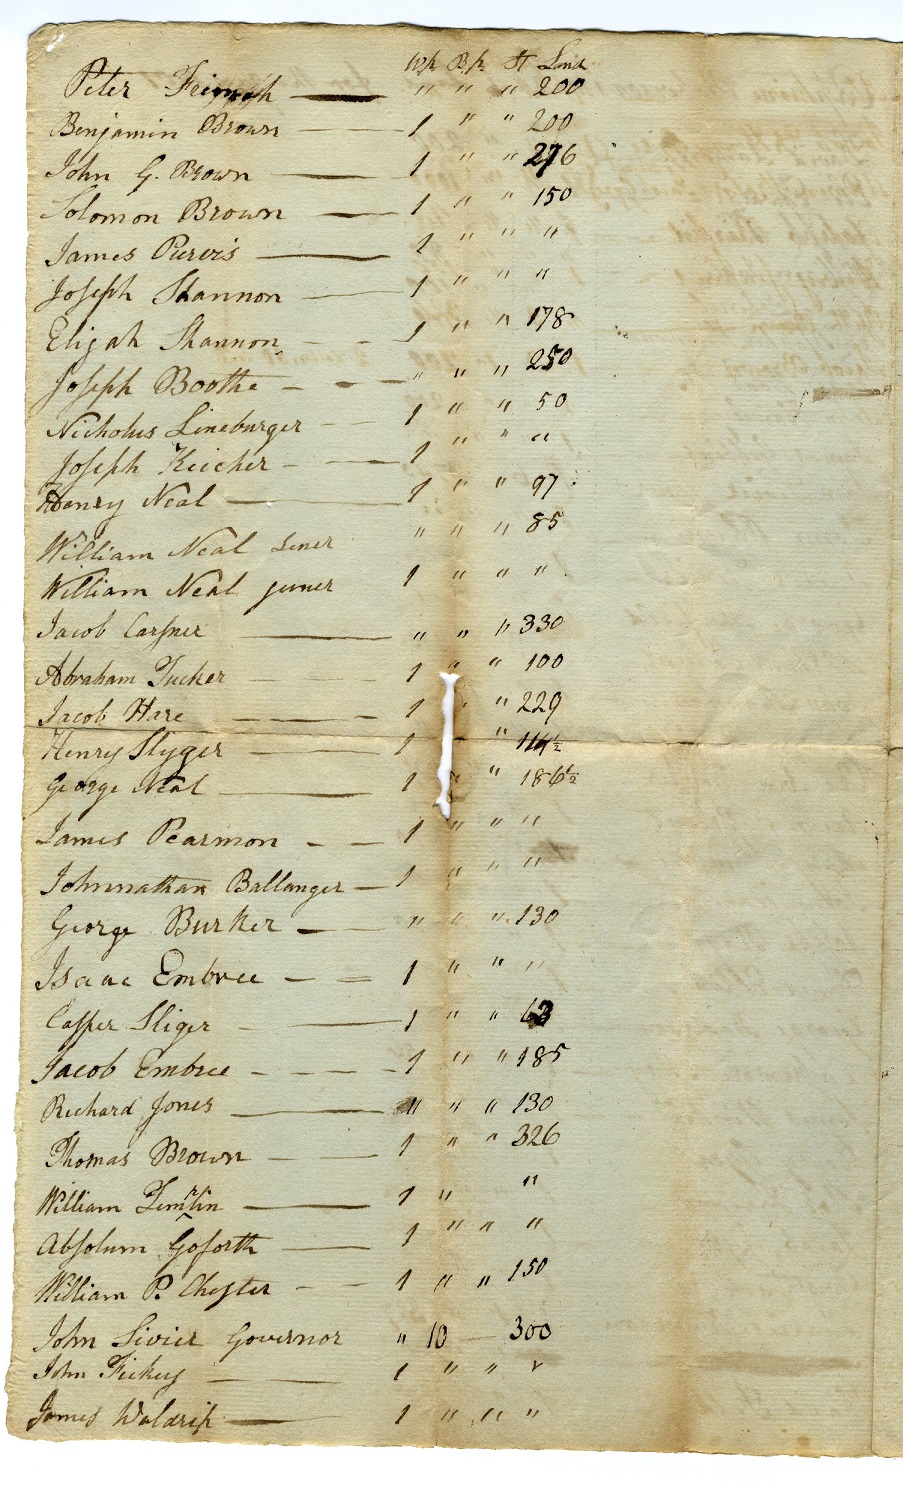 Wp Bp St Land
Peter " " " 200
Benjamin Brown 1 " " 200
John G. Brown 1 " " 276
Solomon Brown 1 " " 150
James Purvis 1 " " "
Joseph Shannon 1 " " "
Elijah Shannon 1 " " 178
Joseph Boothe " " " 250
Nicholus Lineburger 1 " " 50
Joseph Keicher 1 " " "
Henry Neal 1 " " 97
William Neal Sener " " " 85
William Neal juner 1 " " "
Jacob Casner " " " 330
Abraham Tucker 1 " " 100
Jacob Hare 1 " " 229
Henry Slyger 1 "
George Neal 1 " " 186½
James Pearmon 1 " " "
Johnnathan Ballanger 1 " " "
George Burker " " " 130
Isaac Embree 1 " " "
Casper Sliger 1 " " 63
Jacob Embree 1 " " 185
Richard Jones " " " 130
Thomas Brown 1 " " 326
William 1 " "
Absolum Goforth 1 " " "
William P. Chester 1 " " 150
John Sivier Governor " 10 300
John Fickey 1 " " "
James Waldrip 1 " " "